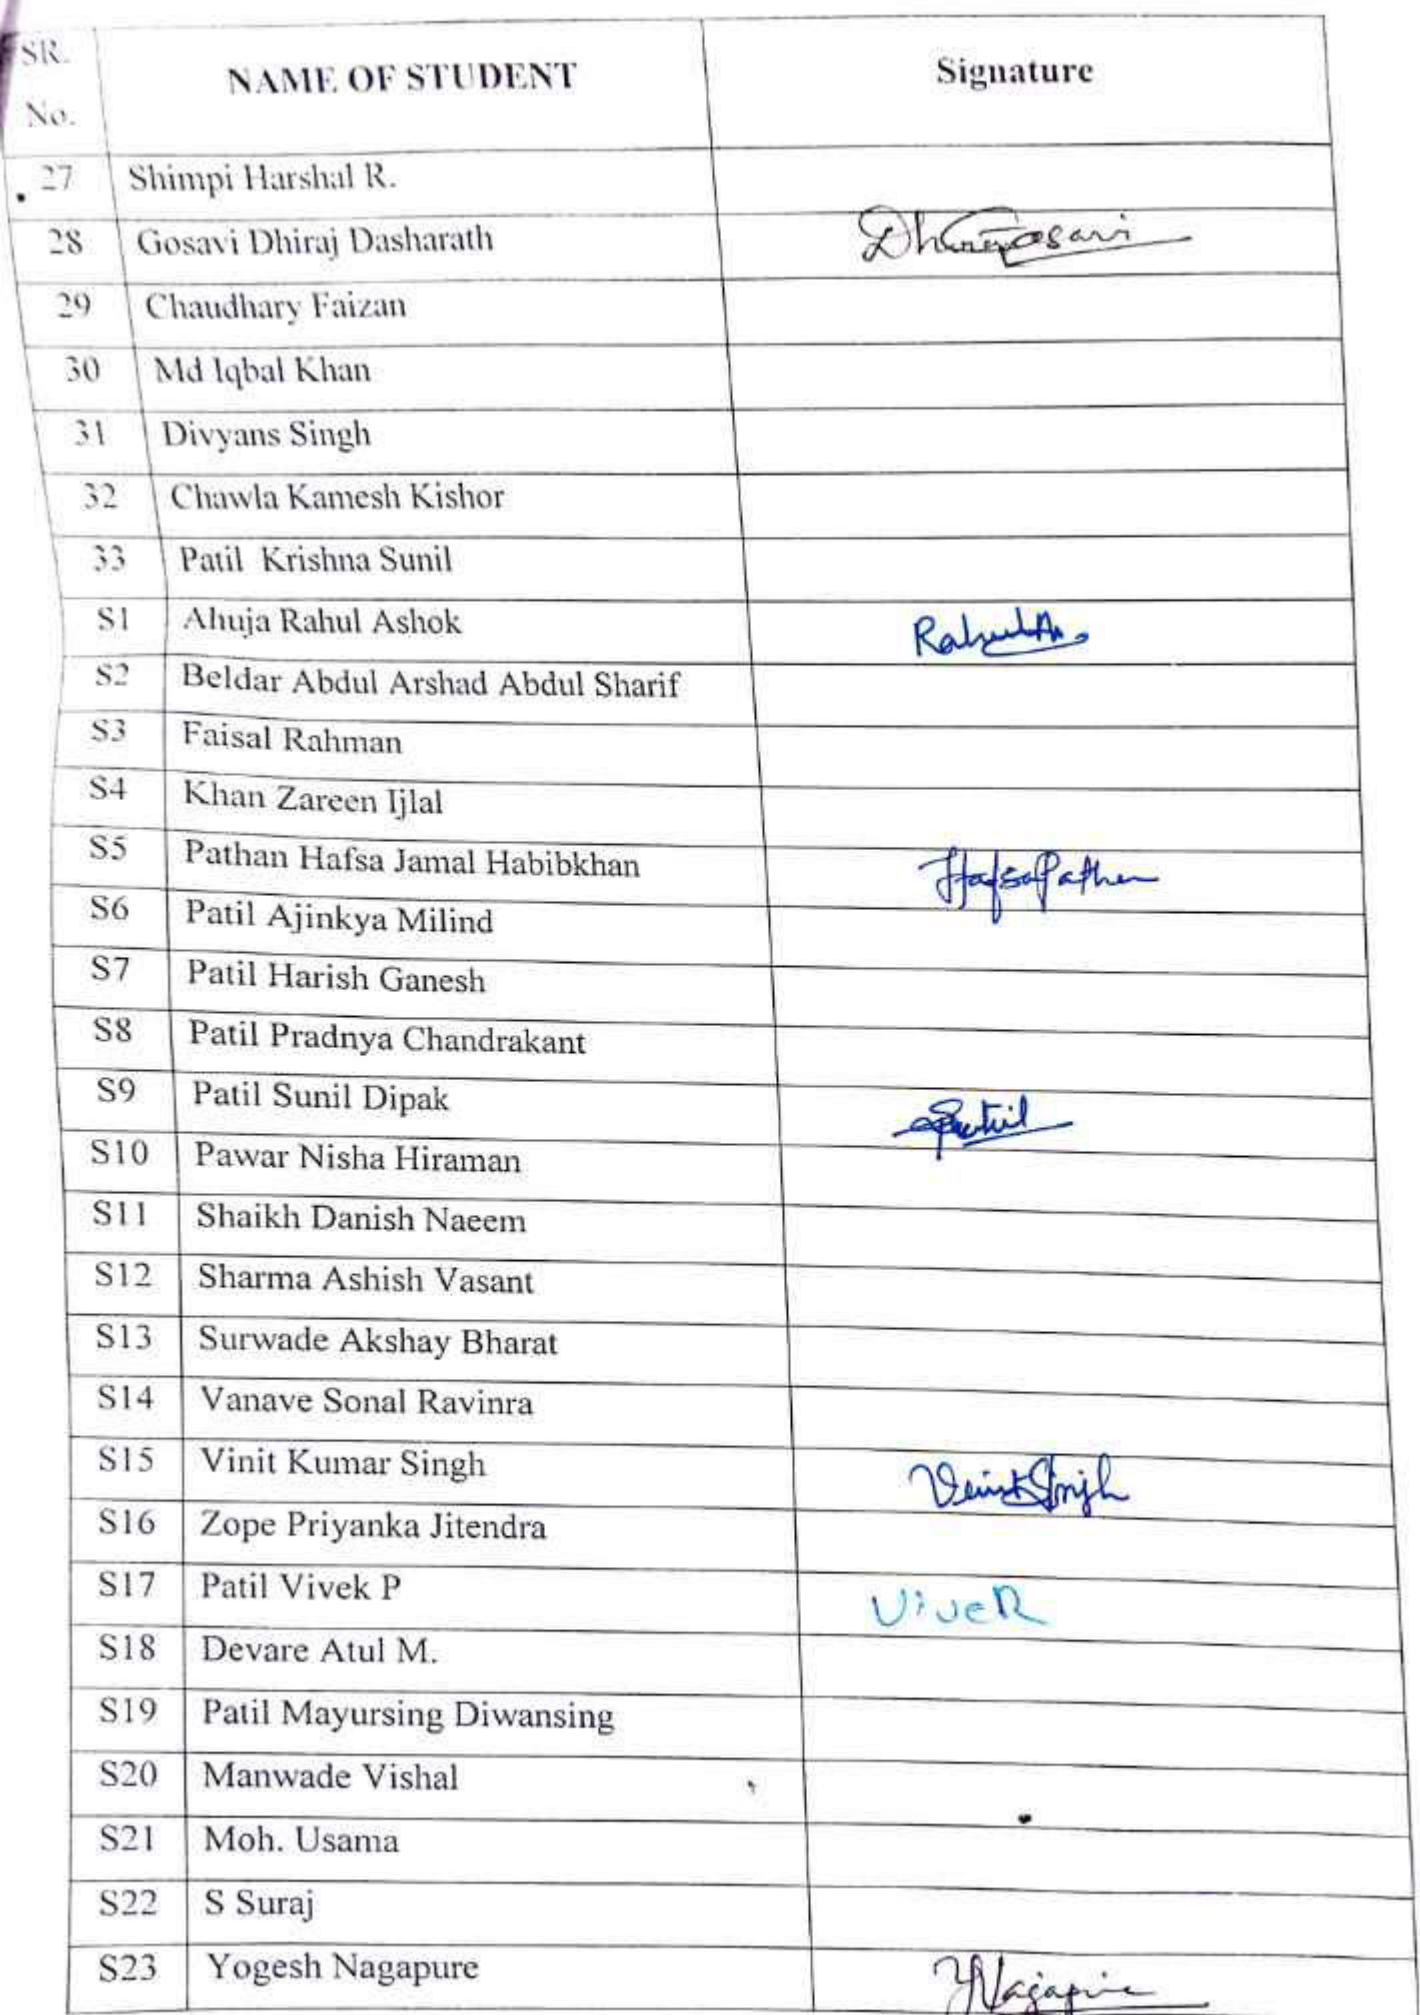 SR. No. NAME OF STUDENT Signature
27 Shimpi Harshal R.
28 Gosavi Dhiraj Dasharath
29 Chaudhary Faizan
30 Md Iqbal Khan
31 Divyans Singh
32 Chawla Kamesh Kishor
33 Patil Krishna Sunil
S1 Ahuja Rahul Ashok RahulA.
S2 Beldar Abdul Arshad Abdul Sharif
S3 Faisal Rahman
S4 Khan Zareen Ijlal
S5 Pathan Hafsa Jamal Habibkhan HafsaPathan
S6 Patil Ajinkya Milind
S7 Patil Harish Ganesh
S8 Patil Pradnya Chandrakant
S9 Patil Sunil Dipak SPatil
S10 Pawar Nisha Hiraman
S11 Shaikh Danish Naeem
S12 Sharma Ashish Vasant
S13 Surwade Akshay Bharat
S14 Vanave Sonal Ravinra
S15 Vinit Kumar Singh VinitSingh
S16 Zope Priyanka Jitendra
S17 Patil Vivek P Vivek
S18 Devare Atul M.
S19 Patil Mayursing Diwansing
S20 Manwade Vishal
S21 Moh. Usama
S22 S Suraj
S23 Yogesh Nagapure